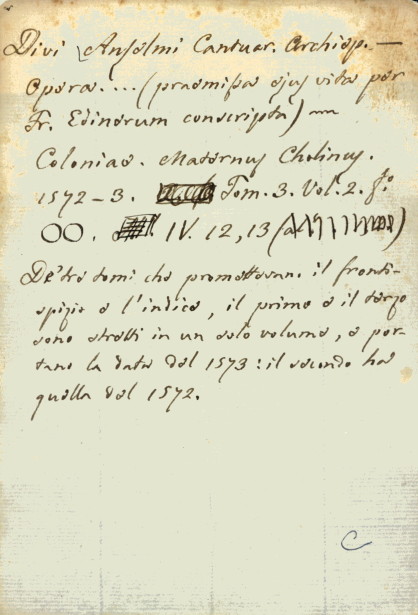 Divi Anselmi Cantuar. Archiep. —
Opera .... (praemissa ejus vita per
Fr. Edinerum conscripta) —
Coloniae. Maternus Cholinus.
1572-3. Tom. 3. Vol. 2. fo:
OO. IV. 12, 13 (a
De' tre tomi che promettevansi il fronti-
spizio e l'indice, il primo e il terzo
sono stretti in un solo volume, e por-
tano la data del 1573: il secondo ha
quella del 1572.
C